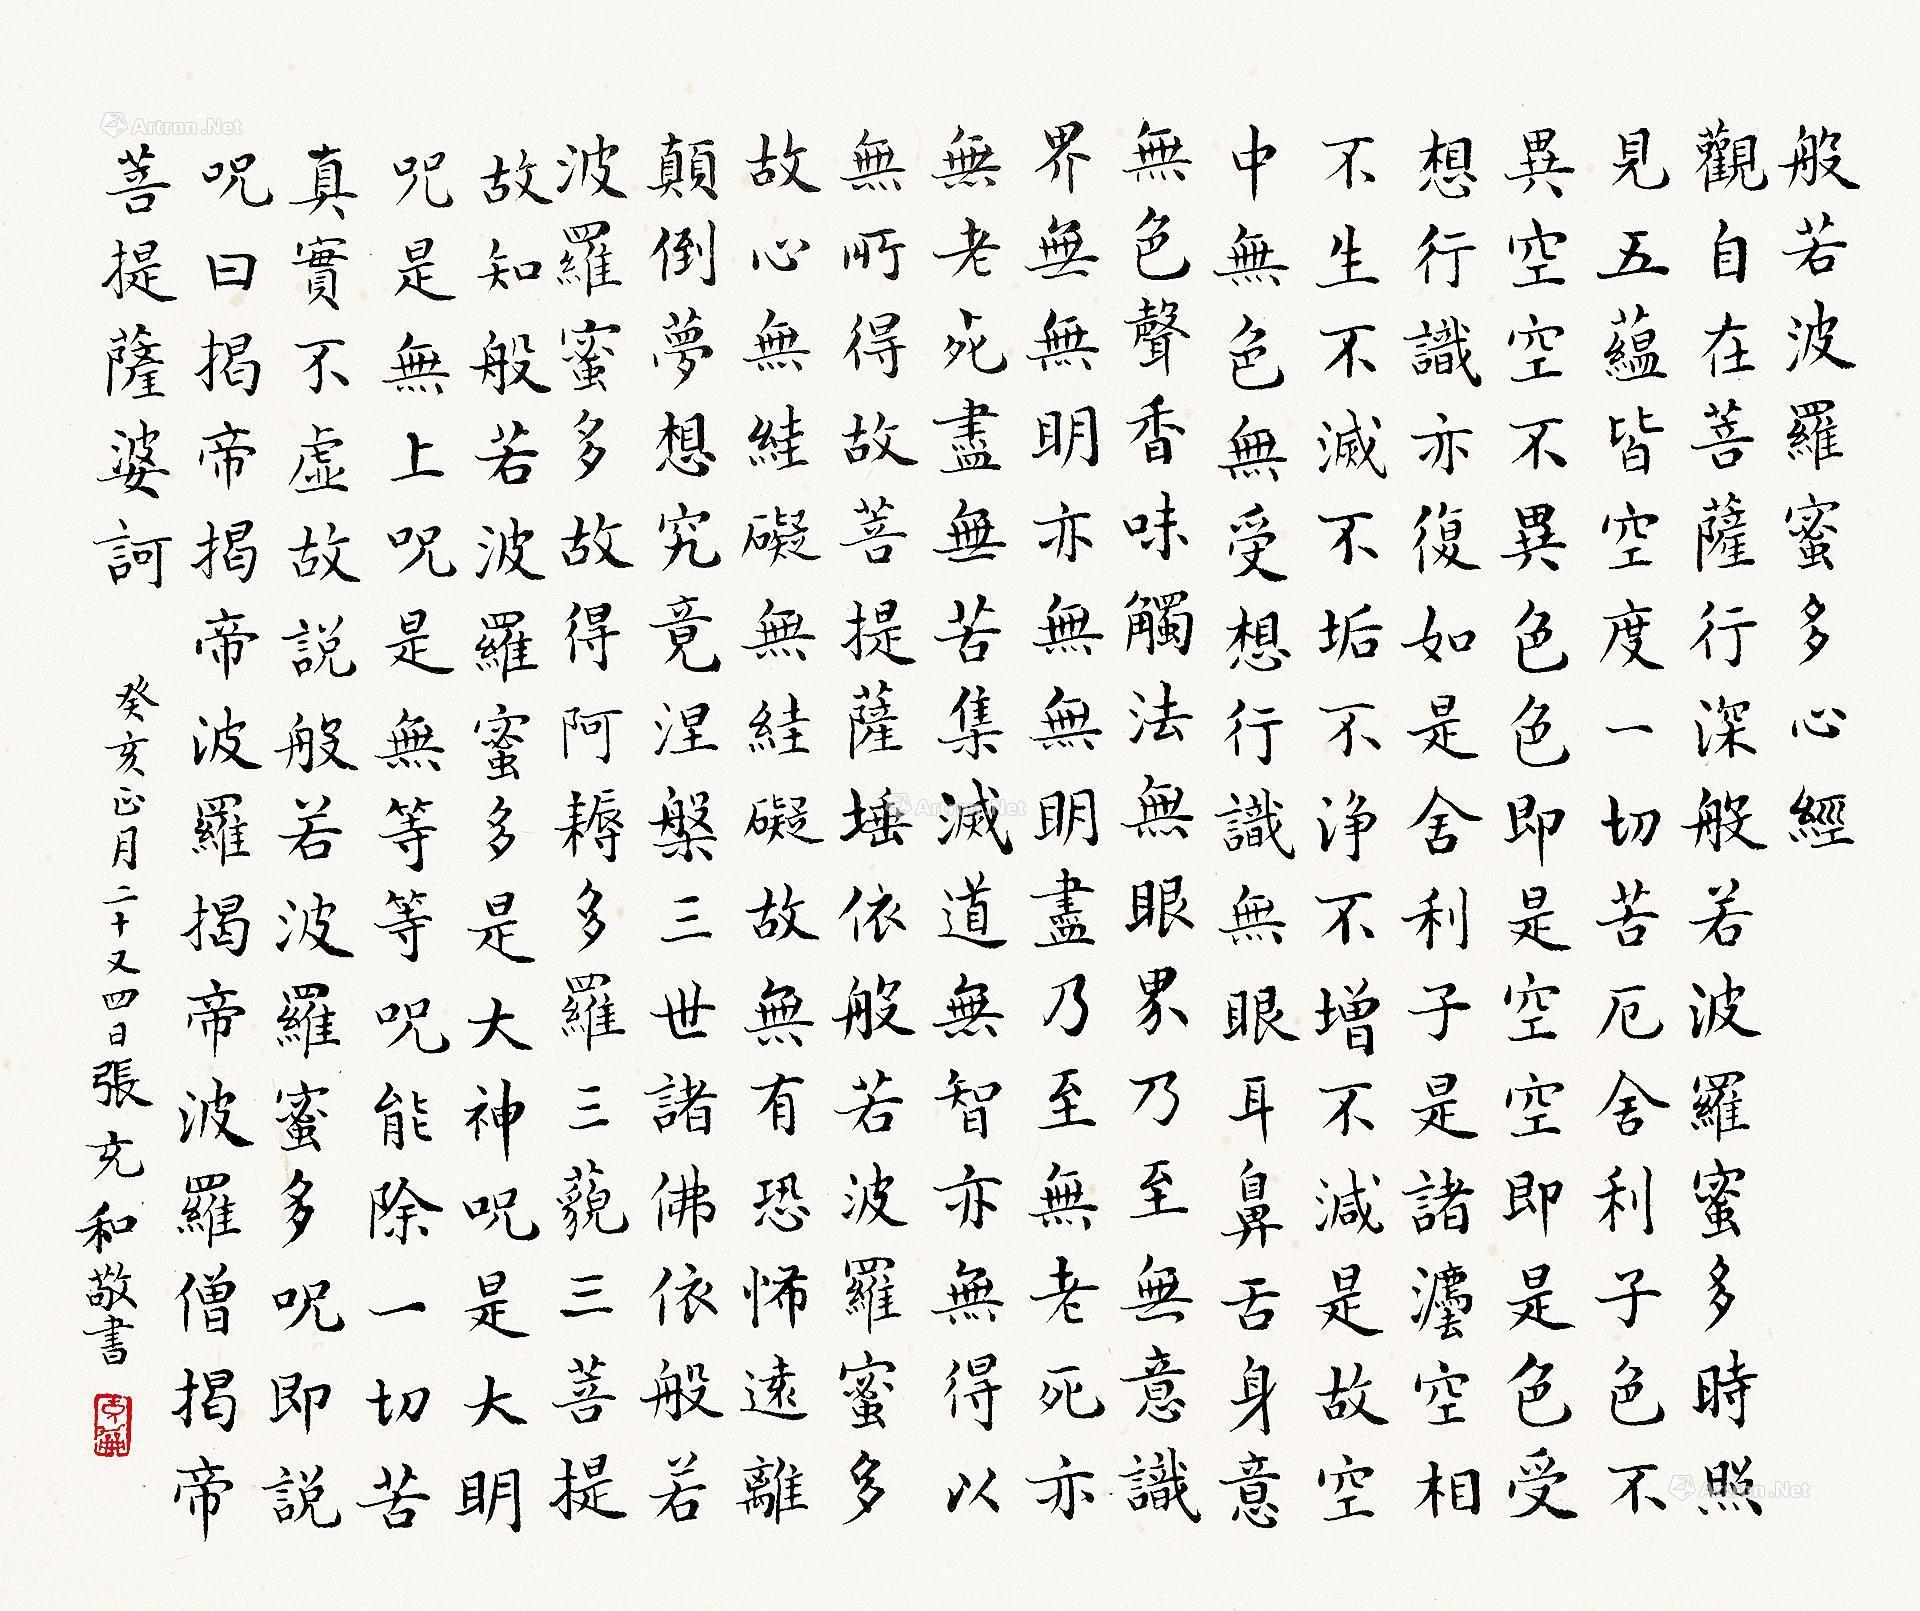 般若波羅蜜多心經
觀自在菩薩行深般若波羅蜜多時照
見五蘊皆空度一切苦厄舍利子色不
異空空不異色色即是空空即是色受
想行識亦復如是舍利子是諸灋空相
不生不滅不垢不淨不增不減是故空
中無色無受想行識無眼耳鼻舌身意
無色聲香味觸法無眼界乃至無意識
界無無明亦無無明盡乃至無老死亦
無老死盡無苦集滅道無智亦無得以
無所得故菩提薩埵依般若波羅蜜多
故心無絓礙無絓礙故無有恐怖遠離
顛倒夢想究竟涅槃三世諸佛依般若
波羅蜜多故得阿耨多羅三藐三菩提
故知般若波羅蜜多是大神咒是大明
咒是無上咒是無等等咒能除一切苦
真實不虛故説般若波羅蜜多咒即説
咒曰揭帝揭帝波羅揭帝波羅僧揭帝
菩提薩婆訶
癸亥正月二十又四日張充和敬書
Artron.Net
Artron.Net
Artron.Net